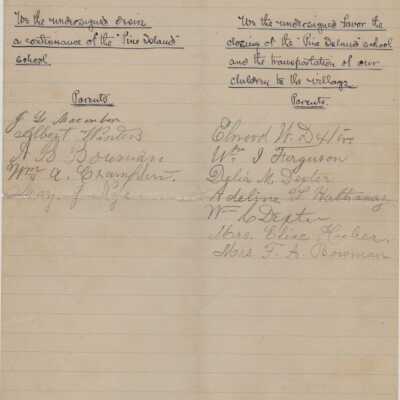 We the undersigned desire
a continuance of the "Pine Island"
school.
Parents
J G Macomber
Albert Winters
A B Bowman
Wm A. Champlin.
We the undersigned favor the
closing of the "Pine Island" school
and the transportation of our
children to the village
Parents.
Elwood W.
Wm I Ferguson
Delia M. Dexter
Adeline F Hathaway
Wm C Dexter
Mrs. Elise
Mrs. F. A. Bowman